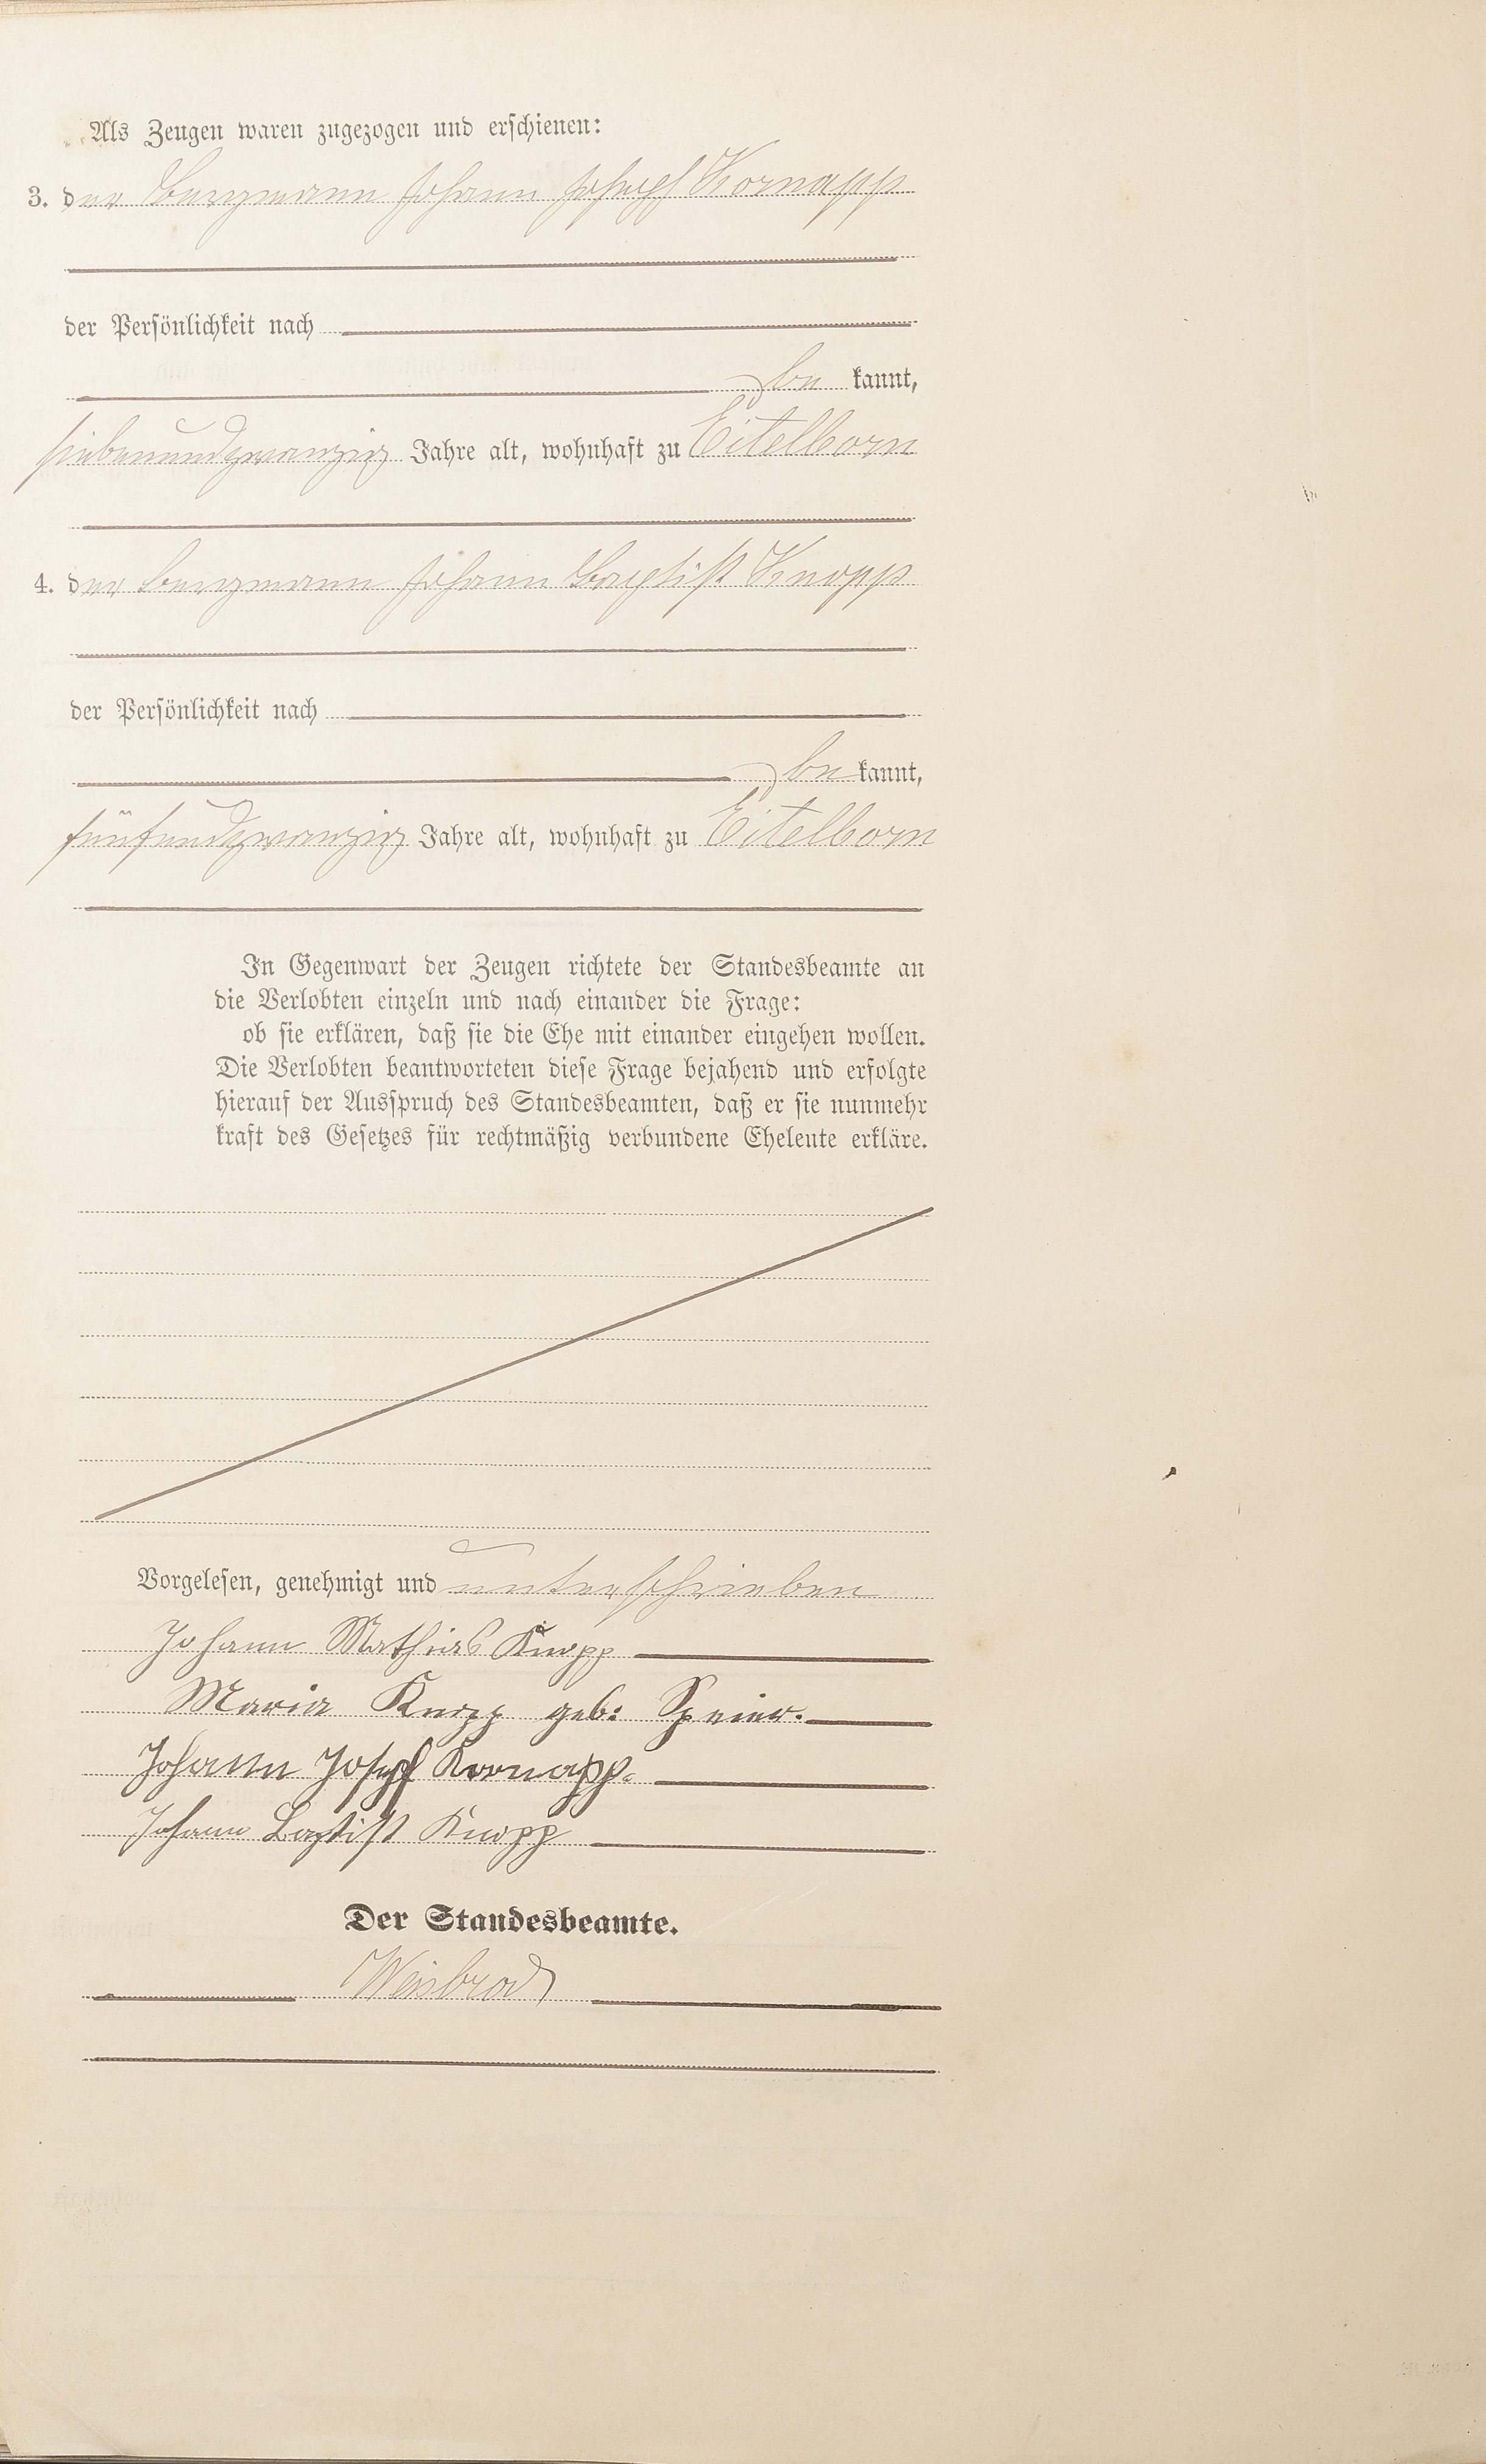 Als Zeugen waren zugezogen und erschienen:
3. der Bergmann Johann Joseph Kornapp
der Persönlichkeit nach
be kannt,
siebenundzwanzig Jahre alt, wohnhaft zu Eitelborn
4. der Bergmann Johann Baptist Knopp
der Persönlichkeit nach
be kannt,
fünfundzwanzig Jahre alt, wohnhaft zu Eitelborn
In Gegenwart der Zeugen richtete der Standesbeamte an
die Verlobten einzeln und nach einander die Frage:
ob sie erklären, daß sie die Ehe mit einander eingehen wollen.
Die Verlobten beantworteten diese Frage bejahend und erfolgte
hierauf der Ausspruch des Standesbeamten, daß er sie nunmehr
kraft des Gesetzes für rechtmäßig verbundene Eheleute erkläre.
Vorgelesen, genehmigt und unterschrieben
Johann Mathias Knopp
Maria Knopp geb: Speier.
Johann Joseph Kornapp.
Johann Baptist Knopp
Der Standesbeamte.
Weisbrod